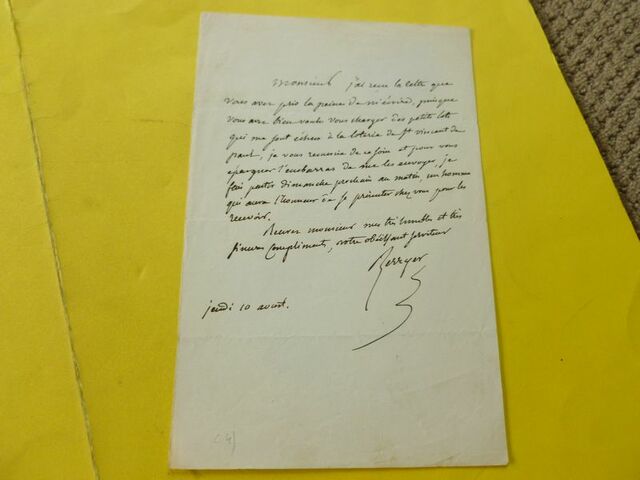 Monsieur j'ai reçu la lettre que
vous avez pris la peine de m'écrire, puisque
vous avez bien voulu vous charger des petits lots
qui me sont échus à la loterie de St vincent de
paul, je vous remercie de ce soin et pour vous
epargner l'embarras de me les envoyer, je
fais partir dimanche prochain au matin, un homme
qui aura l'honneur de se présenter chez vous pour les
recevoir.
Recevez monsieur mes très humbles et très
sincères compliments, votre obéissant serviteur
Berryer
jeudi 10 aoust.